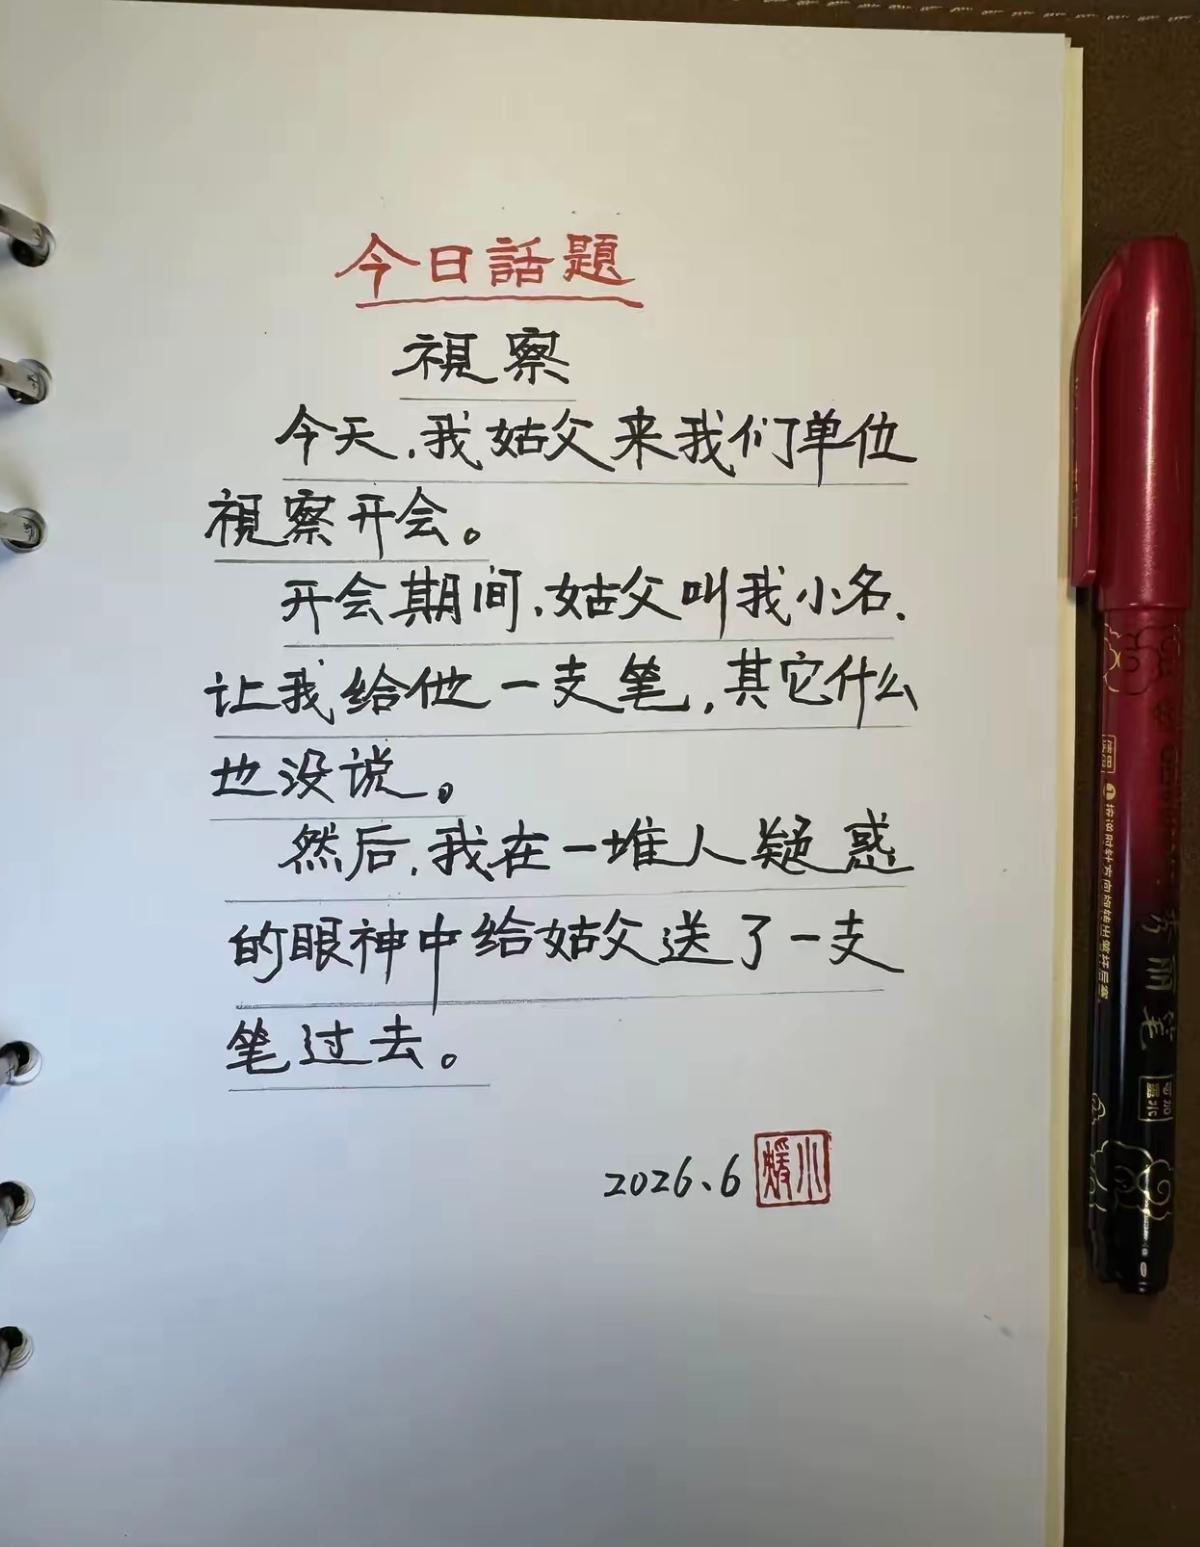 今日話題
視察
今天,我姑父来我们单位
視察开会。
开会期间,姑父叫我小名,
让我给他一支笔,其它什么
也没说。
然后,我在一堆人疑惑
的眼神中给姑父送了一支
笔过去。
2026、6
秀丽笔